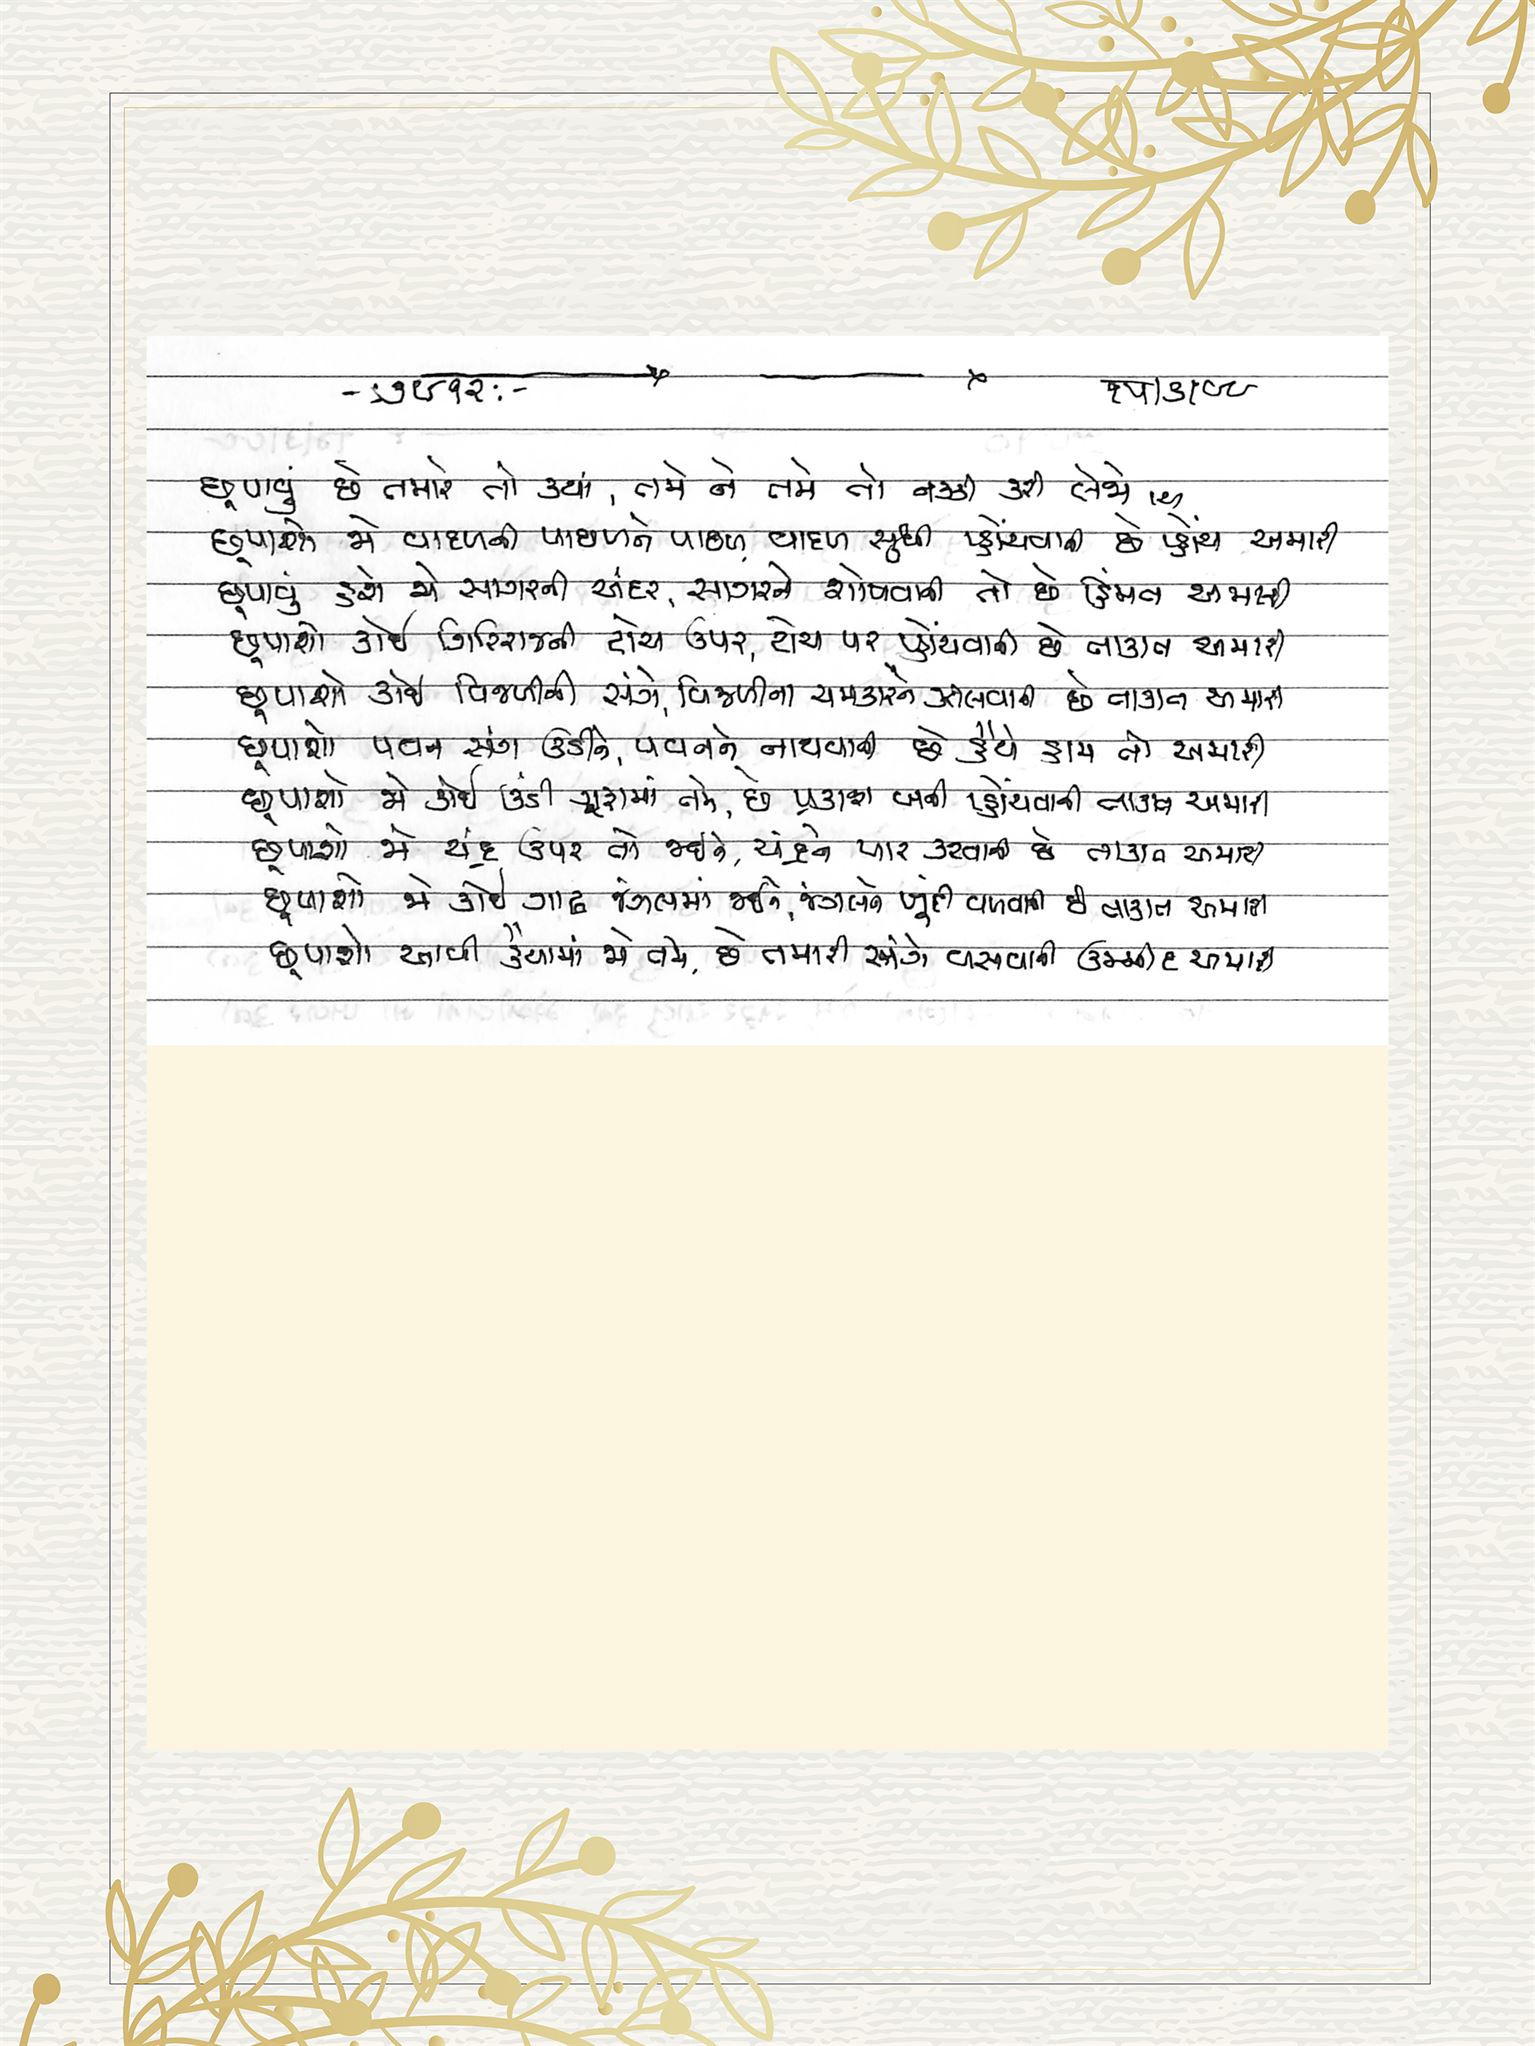 છૂપાવું છે તમારે તો ક્યાં, તમે ને તમે તો નક્કી કરી લેજો
છૂપાશો જો વાદળની પાછળને પાછળ, વાદળ સુધી પ્હોંચવાની છે પ્હોંચ અમારી
છૂપાવું હશે જો સાગરની અંદર, સાગરને શોષવાની તો છે હિંમત અમારી
છૂપાશો કોઈ ગિરિરાજની ટોચ ઉપર, ટોચ પર પ્હોંચવાની છે તાકાત અમારી
છૂપાશો કોઈ વિજળીની સંગે, વિજળીના ચમકારને ઝીલવાની છે તાકાત અમારી
છૂપાશો પવન સંગ ઉડીને, પવનને નાથવાની છે હૈયે હામ તો અમારી
છૂપાશો જો કોઈ ઉંડી ગૂફામાં તમે, છે પ્રકાશ બની પ્હોંચવાની તાકાત અમારી
છૂપાશો જો ચંદ્ર ઉપર તો જઈને, ચંદ્રને પાર કરવાની છે તાકાત અમારી
છૂપાશો જો કોઈ ગાઢ જંગલમાં જઈને, જંગલને ખૂંદી વળવાની છે તાકાત અમારી
છૂપાશો આવી હૈયામાં જો તમે, છે તમારી સંગે વસવાની ઉમ્મીદ અમારી